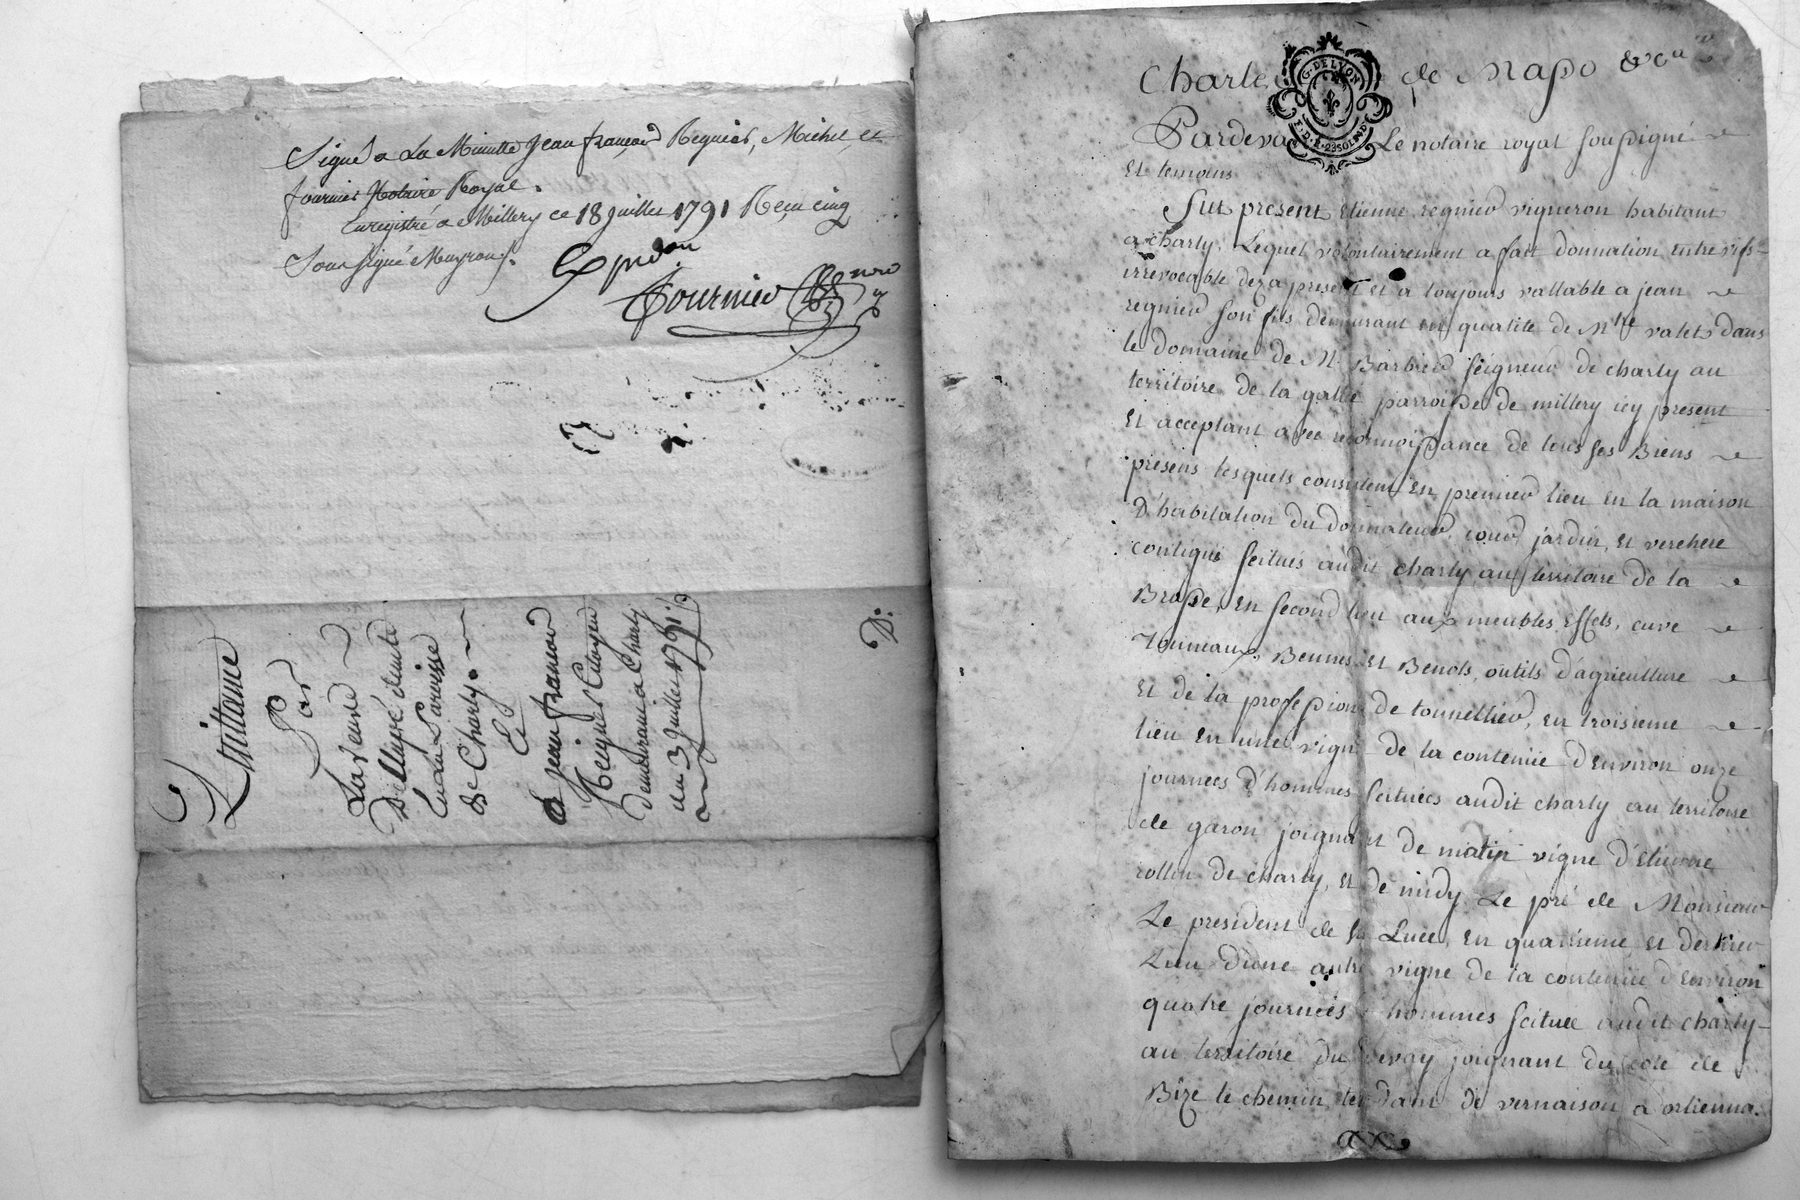 Signé a La Minutte Jean françois Régnier, Michel, et
fournier Notaire Royal.
Enregistré a Millery ce 18 Juillet 1791 Reçu cinq
Sous signé Muyron.
Expedon
Fournier
Quittance
Par
La veuve
Delluperé
de la Paroisse
de Charly.
Et
a jean francois
Regnier Citoyen
demeurant a Charly
du 3 Juillet 1791
D:
Charle de Napo &ca
G. DE LYON
F.D.R. 23 SOL 6 D
Pardeva Le notaire royal soussigné
Et temoins
Fut present Etienne regnier vigneron habitant
a charly. Lequel volontairement a fait donnation entre vifs
irrevocable dez a present et a toujours vallable a jean
regnier son fils demeurant en qualité de Mtre valet dans
le domaine de Mr Barbier seigneur de charly au
territoire de la gallée parroisse de millery icy present
Et acceptant avec reconnoissance de tous ses Biens
presens lesquels consistent En premier lieu En la maison
D'habitation du donnateur, cour, jardin, Et verchere
contigus scitués audit charly au territoire de la
Brosse, En second lieu aux meubles, Effets, cuve
Tonneaux, Bennes Et Benots, outils d'agriculture
Et de la profession de tonnellier, En troisieme
lieu En une vigne de la contenüe d'Environ onze
journées d'hommes scituées audit charly au territoire
de garon joignant de matin vigne d'Etienne
rollin de charly, Et de midy Le pré de Monsieur
Le president de Ste Luce, En quatrieme Et dernier
Lieu D'une autre vigne de la contenüe d'Environ
quatre journées hommes scituée audit charly
au territoire du devay joignant du coté de
Bize le chemin tendant de vernaison a orlienna.